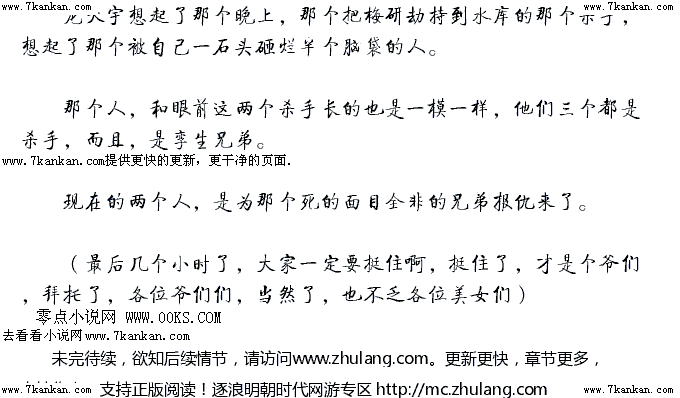 www.7kankan.com www.7kankan.com
天宇想起了那个晚上，那个把梅研劫持到水库的那个杀手，
想起了那个被自己一石头砸烂半个脑袋的人。
那个人，和眼前这两个杀手长的也是一模一样，他们三个都是
杀手，而且，是孪生兄弟。
www.7kankan.com提供更快的更新，更干净的页面.
现在的两个人，是为那个死的面目全非的兄弟报仇来了。
（最后几个小时了，大家一定要挺住啊，挺住了，才是个爷们
，拜托了，各位爷们们，当然了，也不乏各位美女们）
零点小说网 WWW.OOKS.COM
去看看小说网www.7kankan.com
未完待续，欲知后续情节，请访问www.zhulang.com。更新更快，章节更多，
支持正版阅读！逐浪明朝时代网游专区 http://mc.zhulang.com
www.7kankan.com www.7kankan.com